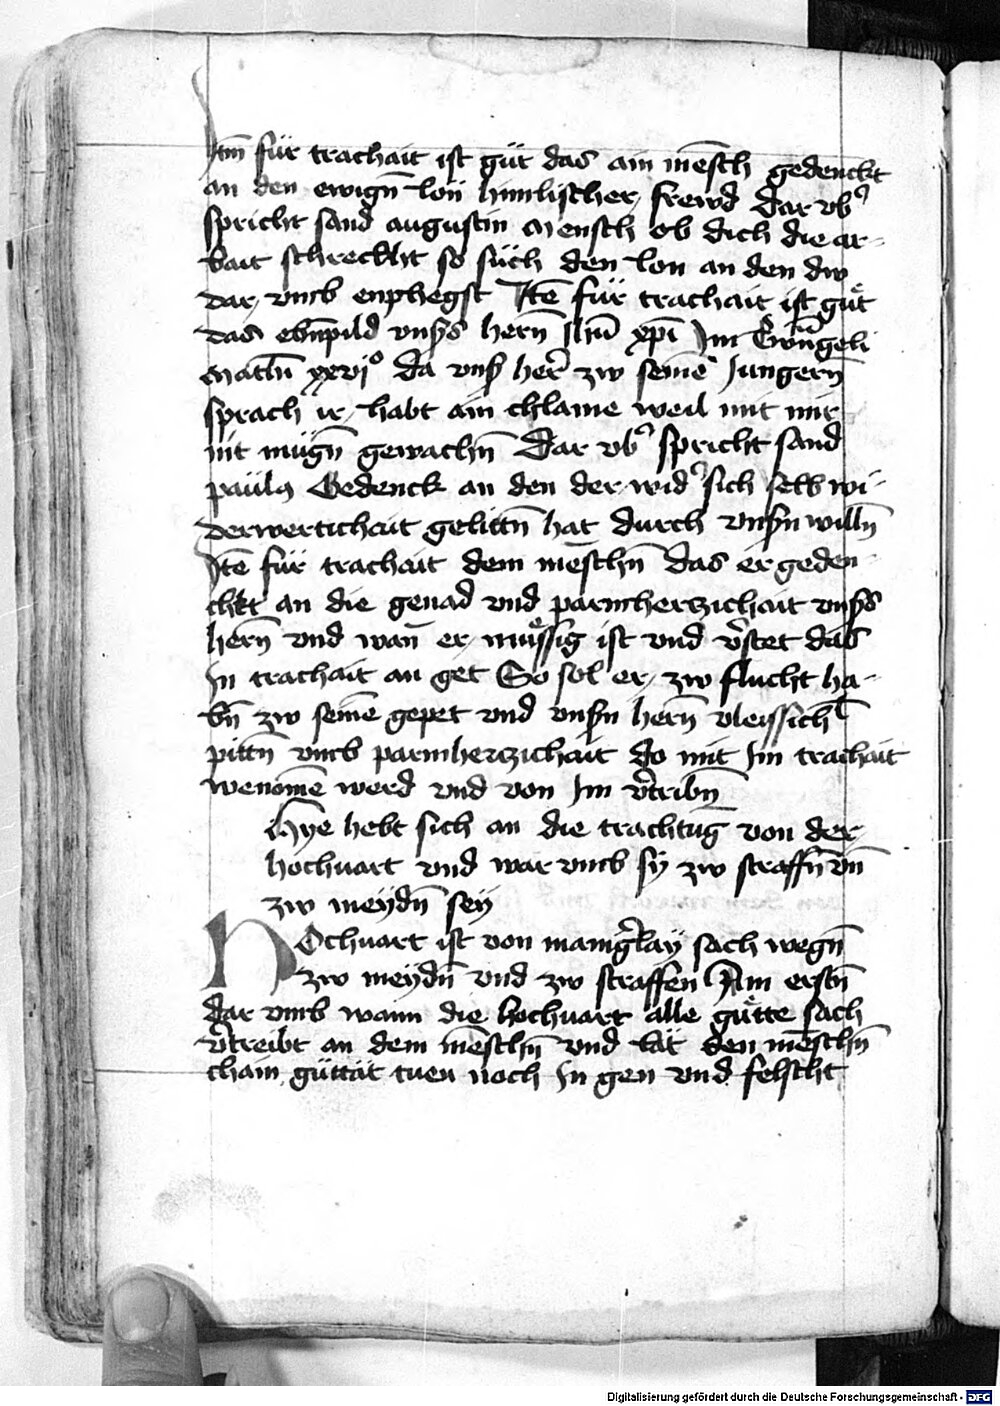 Itm̄ für trachait ist güt das ain mēsch gedenckt
an den ewigñ lon himlischer frewd Dar vbˀ
spricht sand augustin Mensch ob dich die ar-
bait schreckht so süch den lon an den dw
dar vmb enphegst Itē für trachait ist gůt
das ebn̄pild vnsˢs herñ Jhū xpī Im Ewāngeli
Mathī xxvjº da vnsˢ her̄ zw seinē Jungerñ
sprach ir habt ain chlaine weil mit mir
nit mügñ gewachñ Dar vbˀ spricht sand
pauls Gedenck an den der widˀ sich selb wi-
derwertichait gelittñ hat durch vnsˢn willñ
Itē für trachait dem mēschñ das er geden-
ckt an die genad vnd parmherczichait vnsˢs
herñ vnd wan̄ er můssig ist vnd v̄stet das
in trachait an get So sol er zw flucht ha-
bñ zw seinē gepet vnd vnsˢn herñ vleissichˡ
pittñ vmb parmherczichait do mit Im trachait
wenomē werd vnd von Im v̄tribñ
Hye hebt sich an die trachtūg von der
hochuart vnd war vmb sy zw straffñ vn̄
zw meydñ sey
HOchuart ist von manigˀlay sach wegñ
zw meydñ vnd zw straffen Am erstñ
dar vmb wann die hochuart alle gůtte sach
v̄treibt an dem mēschñ vnd lät den mēschñ
chain güttät tuen noch in gen vnd felscht
Digitalisierung gefördert durch die Deutsche Forschungsgemeinschaft - DFG